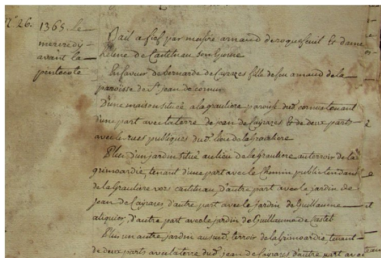 N.° 26. 1365. le
mercredy
avant la
pentecote
Bail a fief par messire arnaud de roquefeuil & dame
helene de Castelnau son Epouse
En faveur de bernarde de Cayrazes fille de feu arnaud de la
paroisse de St. jean de cornus
D'une maison sise à la graulière paroisse dud. cornus tenant
d'une part avec la terre de jean de Cayrazes & de deux parts
avec les rues publiques dud. lieu de la graulière
Plus d'un jardin situé au lieu de la graulière au terroir de la
grimoardie, tenant d'une part avec le chemin public tendant
de la Grauliere vers castelnau, d'autre part avec le jardin de
jean de Cayrazes d'autre part avec le jardin de Guillaume
aliquier, d'autre part avec le jardin de Guillaume de Castel
Plus un autre jardin au susd. terroir de la Grimoardie, tenant
de deux parts avec la terre dud. jean de Cayrazes d'autre part avec